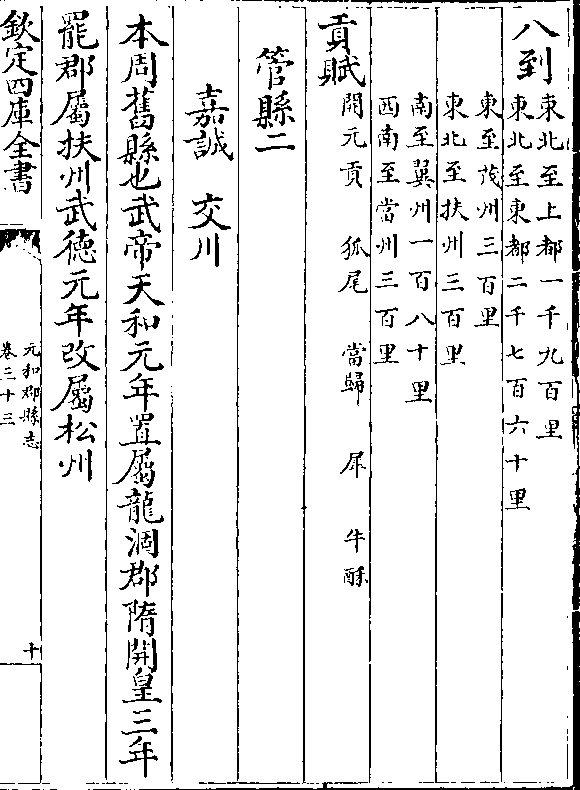 八到
東北至上都一千九百里
東北至東都二千七百六十里
東至茂州三百里
東北至扶州三百里
南至翼州一百八十里
西南至當州三百里
貢賦
開元貢 狐尾 當歸 犀 牛酥
管縣二
嘉誠 交川
本周舊縣也武帝天和元年置屬龍涸郡隋開皇三年
罷郡屬扶州武德元年改屬松州
欽定四庫全書
元和郡縣志
卷三十三
十